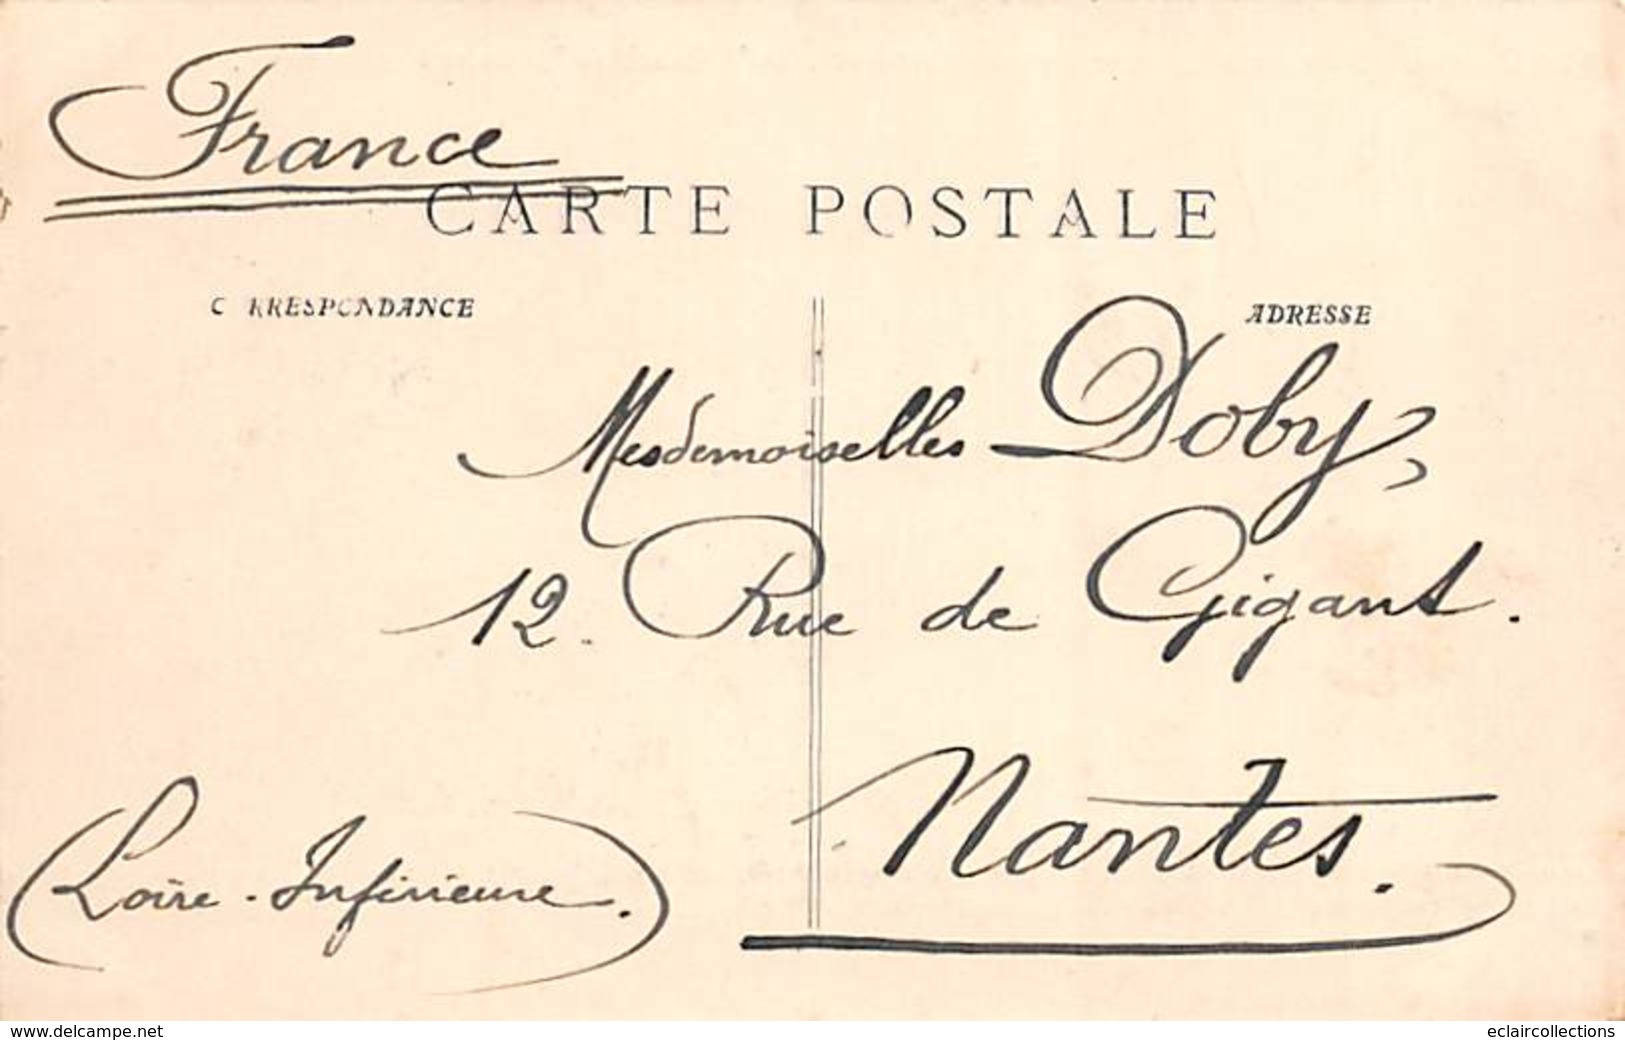 France
CARTE POSTALE
CORRESPONDANCE
ADRESSE
Mesdemoiselles Doby,
12. Rue de Gigant.
Nantes.
(Loire-Inférieure.)
www.delcampe.net
eclaircollections